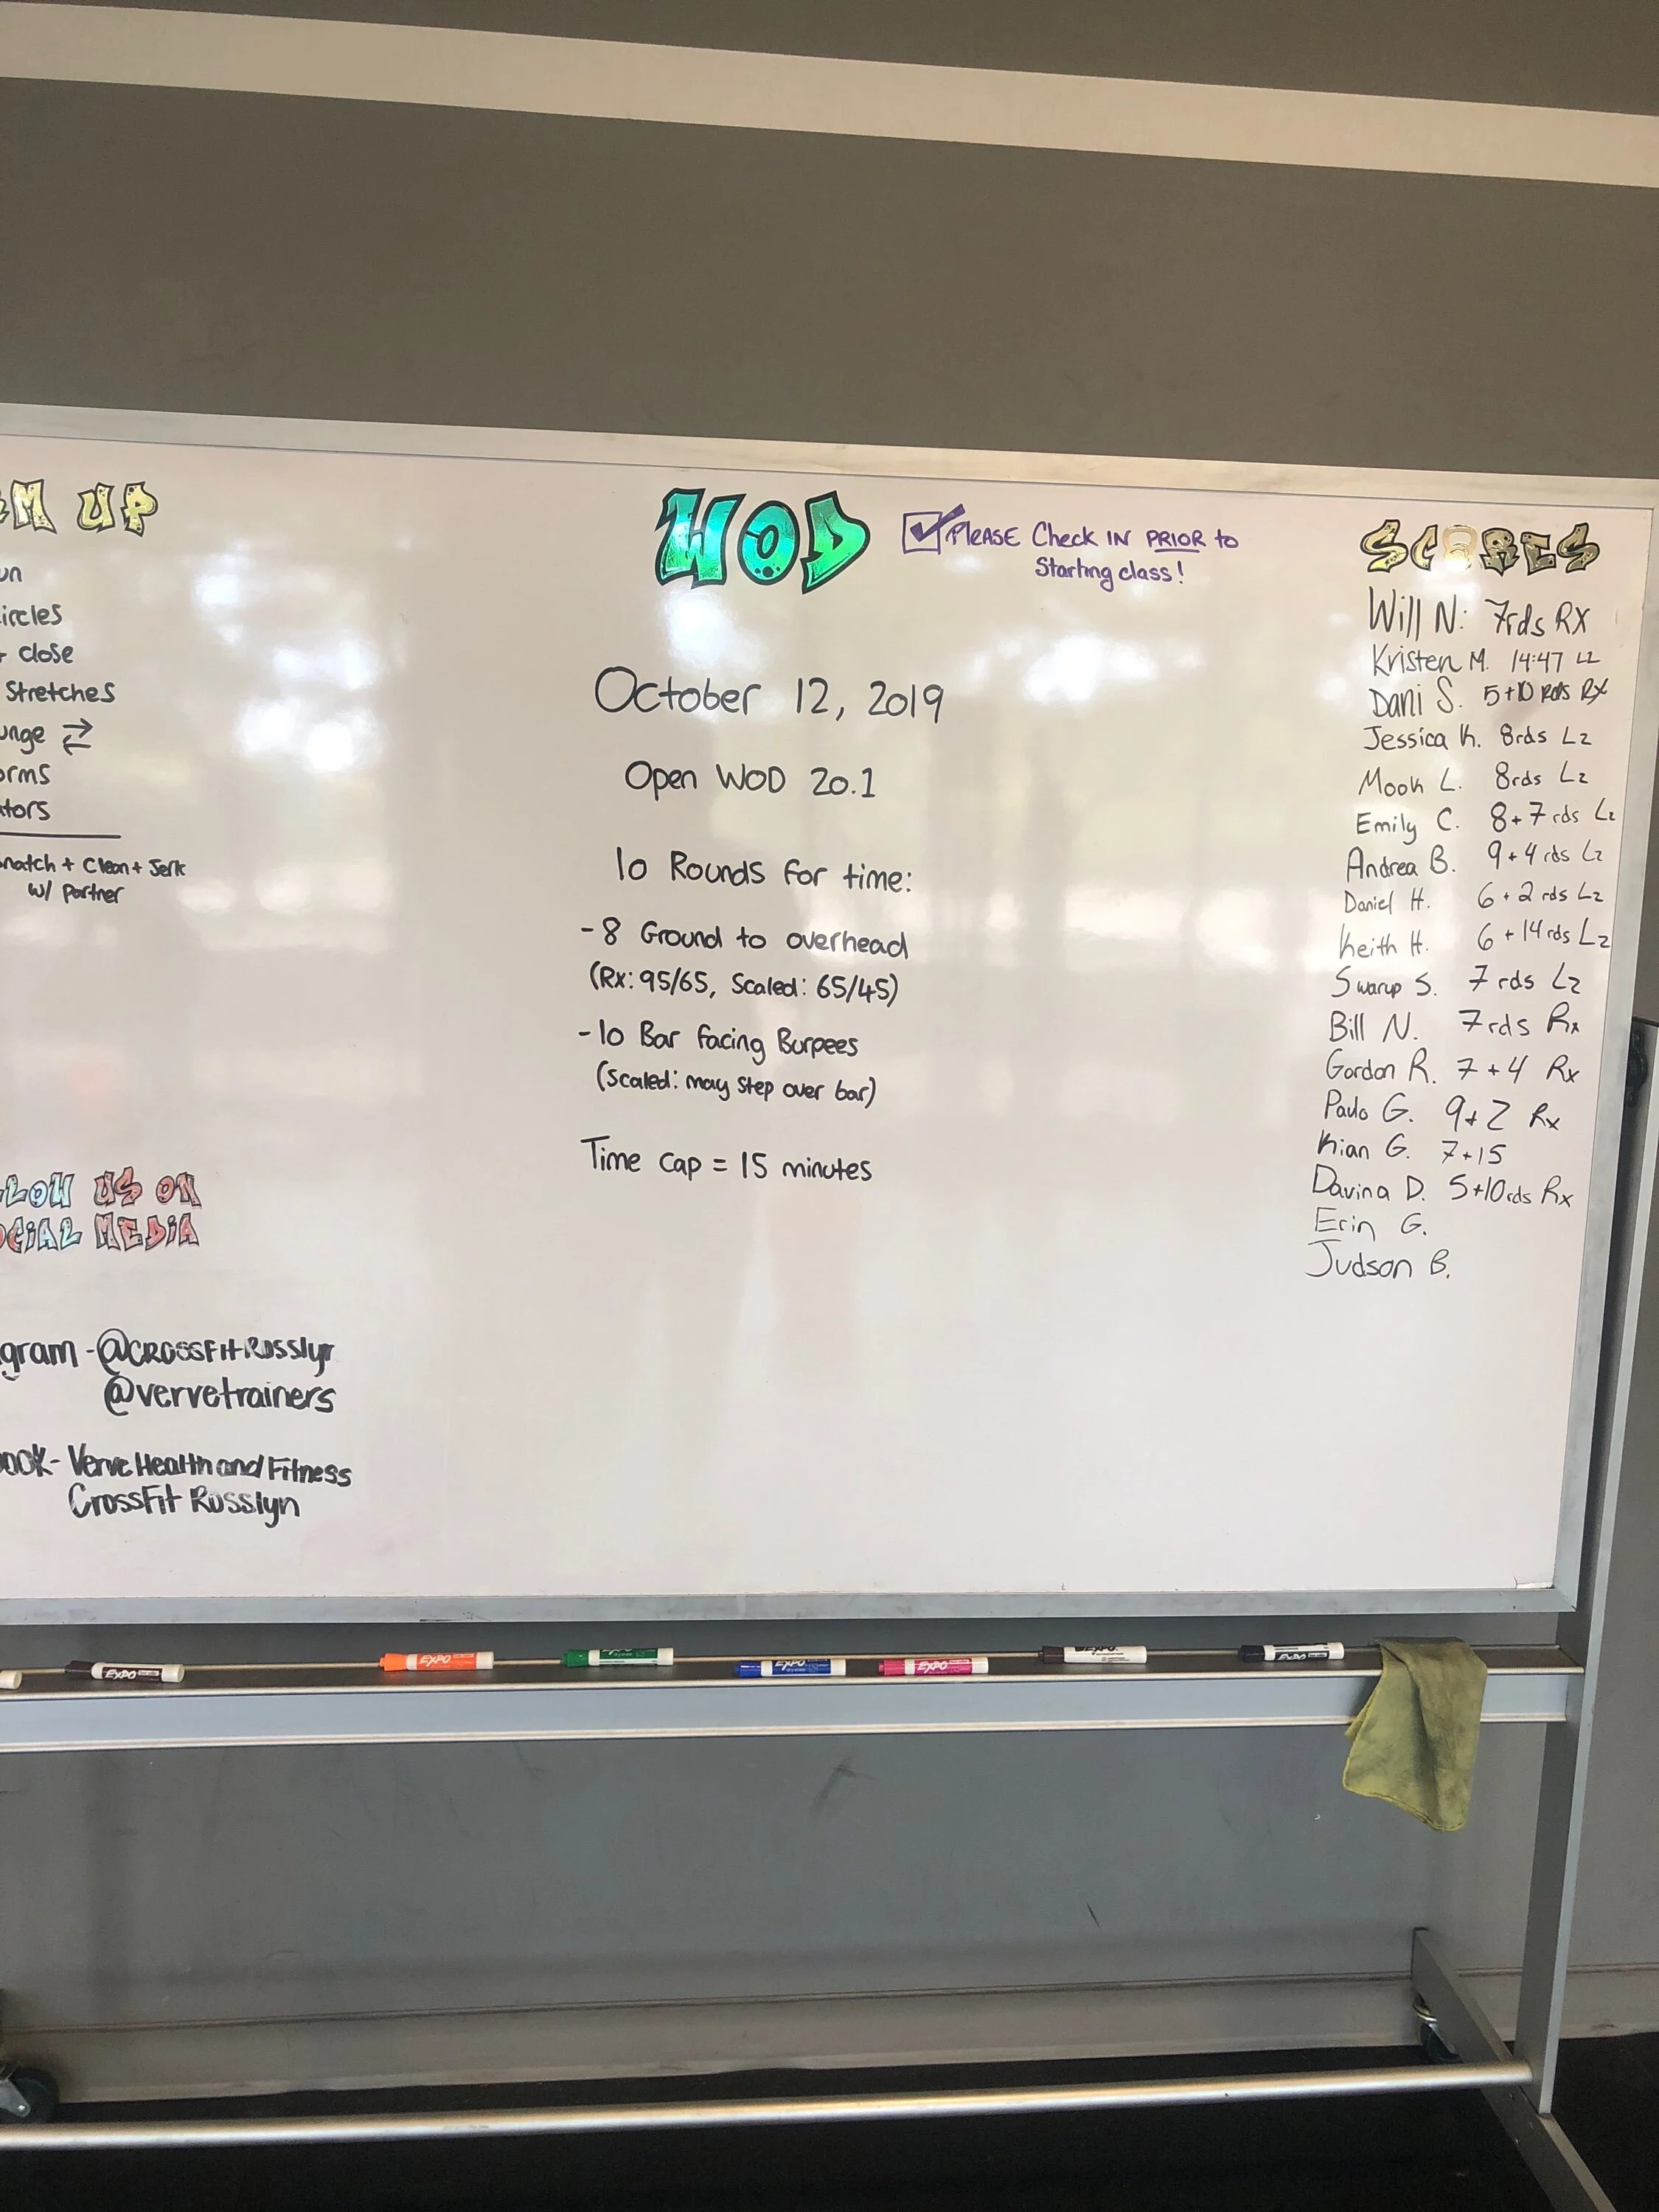 UP
close
Stretches
+ Clean + Jerk
w/ Partner
US ON
MEDIA
-@CROSSFitROSSlyn
@vervetrainers
- Verve Health and Fitness
CrossFit Rosslyn
WOD
PLEASE Check IN PRIOR to
Starting class!
October 12, 2019
Open WOD 20.1
10 Rounds for time:
-8 Ground to overhead
(Rx: 95/65, Scaled: 65/45)
-10 Bar facing Burpees
(Scaled: may step over bar)
Time cap = 15 minutes
SCORES
Will N: 7rds RX
Kristen M. 14:47 L2
Dani S. 5+10 rds Rx
Jessica K. 8rds L2
Mook L. 8rds L2
Emily C. 8+7 rds L2
Andrea B. 9+4 rds L2
Daniel H. 6+2 rds L2
Keith H. 6+14 rds L2
Swarup S. 7 rds L2
Bill N. 7rds Rx
Gordon R. 7+4 Rx
Paulo G. 9+2 Rx
Kian G. 7+15
Davina D. 5+10rds Rx
Erin G.
Judson B.
EXPO
EXPO
EXPO
EXPO
EXPO
EXPO
EXPO